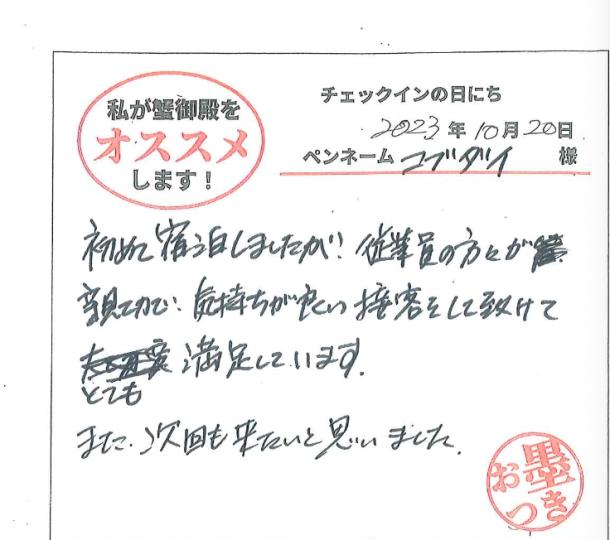 私が蟹御殿を
オススメ
します！
チェックインの日にち
2023年10月20日
ペンネーム コブダイ 様
初めて宿泊しましたが！従業員の方々が
親切で、気持ちが良い接客をして頂けて
とても
満足しています。
また、次回も来たいと思いました。
お墨
つき